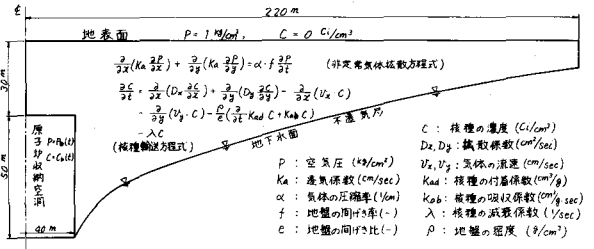 ℄ 220 m
地表面 P = 1 kg/cm², C = 0 Ci/cm³
30 m
∂/∂x(Ka ∂P/∂x) + ∂/∂y(Ka ∂P/∂y) = α・f ∂P/∂t (非定常気体拡散方程式)
∂C/∂t = ∂/∂x(Dx ∂C/∂x) + ∂/∂y(Dy ∂C/∂y) - ∂/∂x(Vx・C)
- ∂/∂y(Vy・C) - ρ/e(∂/∂t Kad C + Kab C)
- λC
(核種輸送方程式)
不透気層
地下水面
50 m
原子炉収納空洞
P=Pb(t)
C=Cb(t)
40 m
P : 空気圧 (kg/cm²)
Ka : 透気係数 (cm/sec)
α : 気体の圧縮率 (1/cm)
f : 地盤の間げき率 (-)
e : 地盤の間げき比 (-)
C : 核種の濃度 (Ci/cm³)
Dx, Dy : 拡散係数 (cm²/sec)
Vx, Vy : 気体の流速 (cm/sec)
Kad : 核種の付着係数 (cm³/g)
Kab : 核種の吸収係数 (cm³/g・sec)
λ : 核種の減衰係数 (1/sec)
ρ : 地盤の密度 (g/cm³)